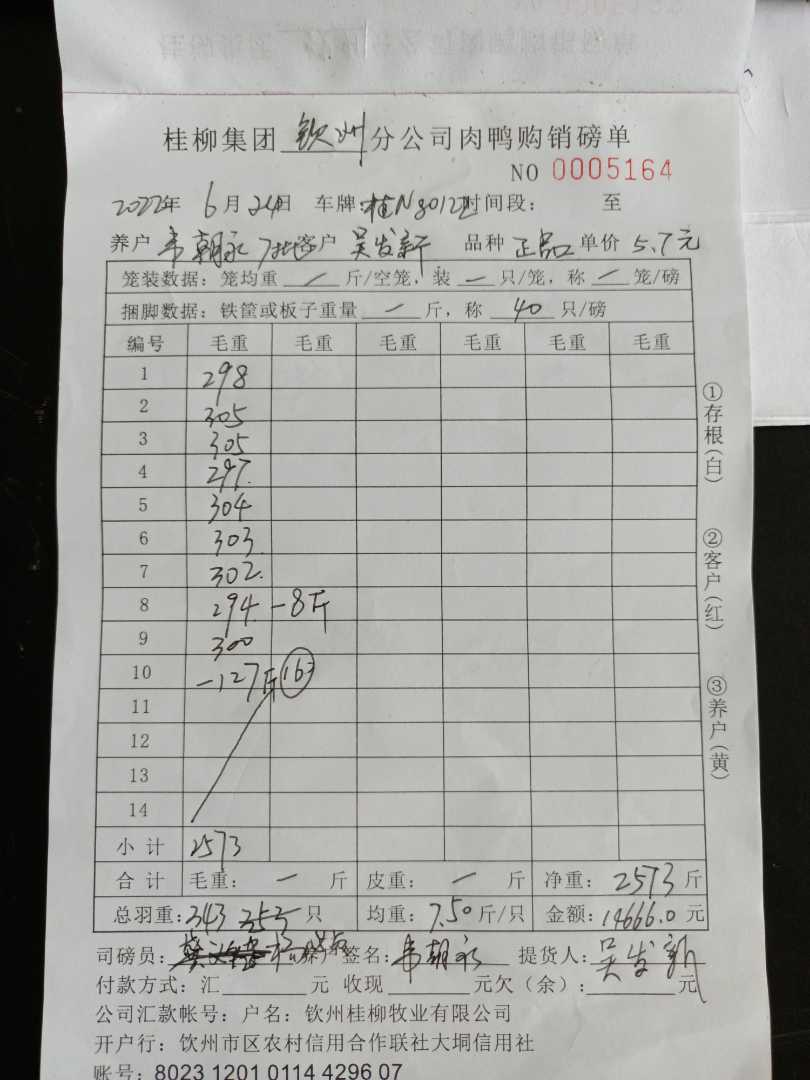 桂柳集团 钦州 分公司肉鸭购销磅单
NO 0005164
2022年 6月24日 车牌:桂N8012 时间段: 至
养户 韦朝永 客户 吴发新 品种 正品 单价 5.7元
笼装数据:笼均重 一 斤/空笼,装 一 只/笼,称 一 笼/磅
捆脚数据:铁筐或板子重量 一 斤,称 40 只/磅
编号 毛重 毛重 毛重 毛重 毛重 毛重
1 298
2 305
3 305
4 297
5 304
6 303
7 302
8 294 -8斤
9 300
10 -127斤 16
11
12
13
14
小计 2573
合计 毛重: 一 斤 皮重: 一 斤 净重: 2573 斤
总羽重: 343 353 只 均重: 7.50 斤/只 金额: 14666.0 元
司磅员: 签名: 韦朝永 提货人: 吴发新
付款方式:汇 元 收现 元欠(余): 元
公司汇款帐号:户名:钦州桂柳牧业有限公司
开户行:钦州市区农村信用合作联社大垌信用社
账号:8023 1201 0114 4296 07
①存根(白)
②客户(红)
③养户(黄)